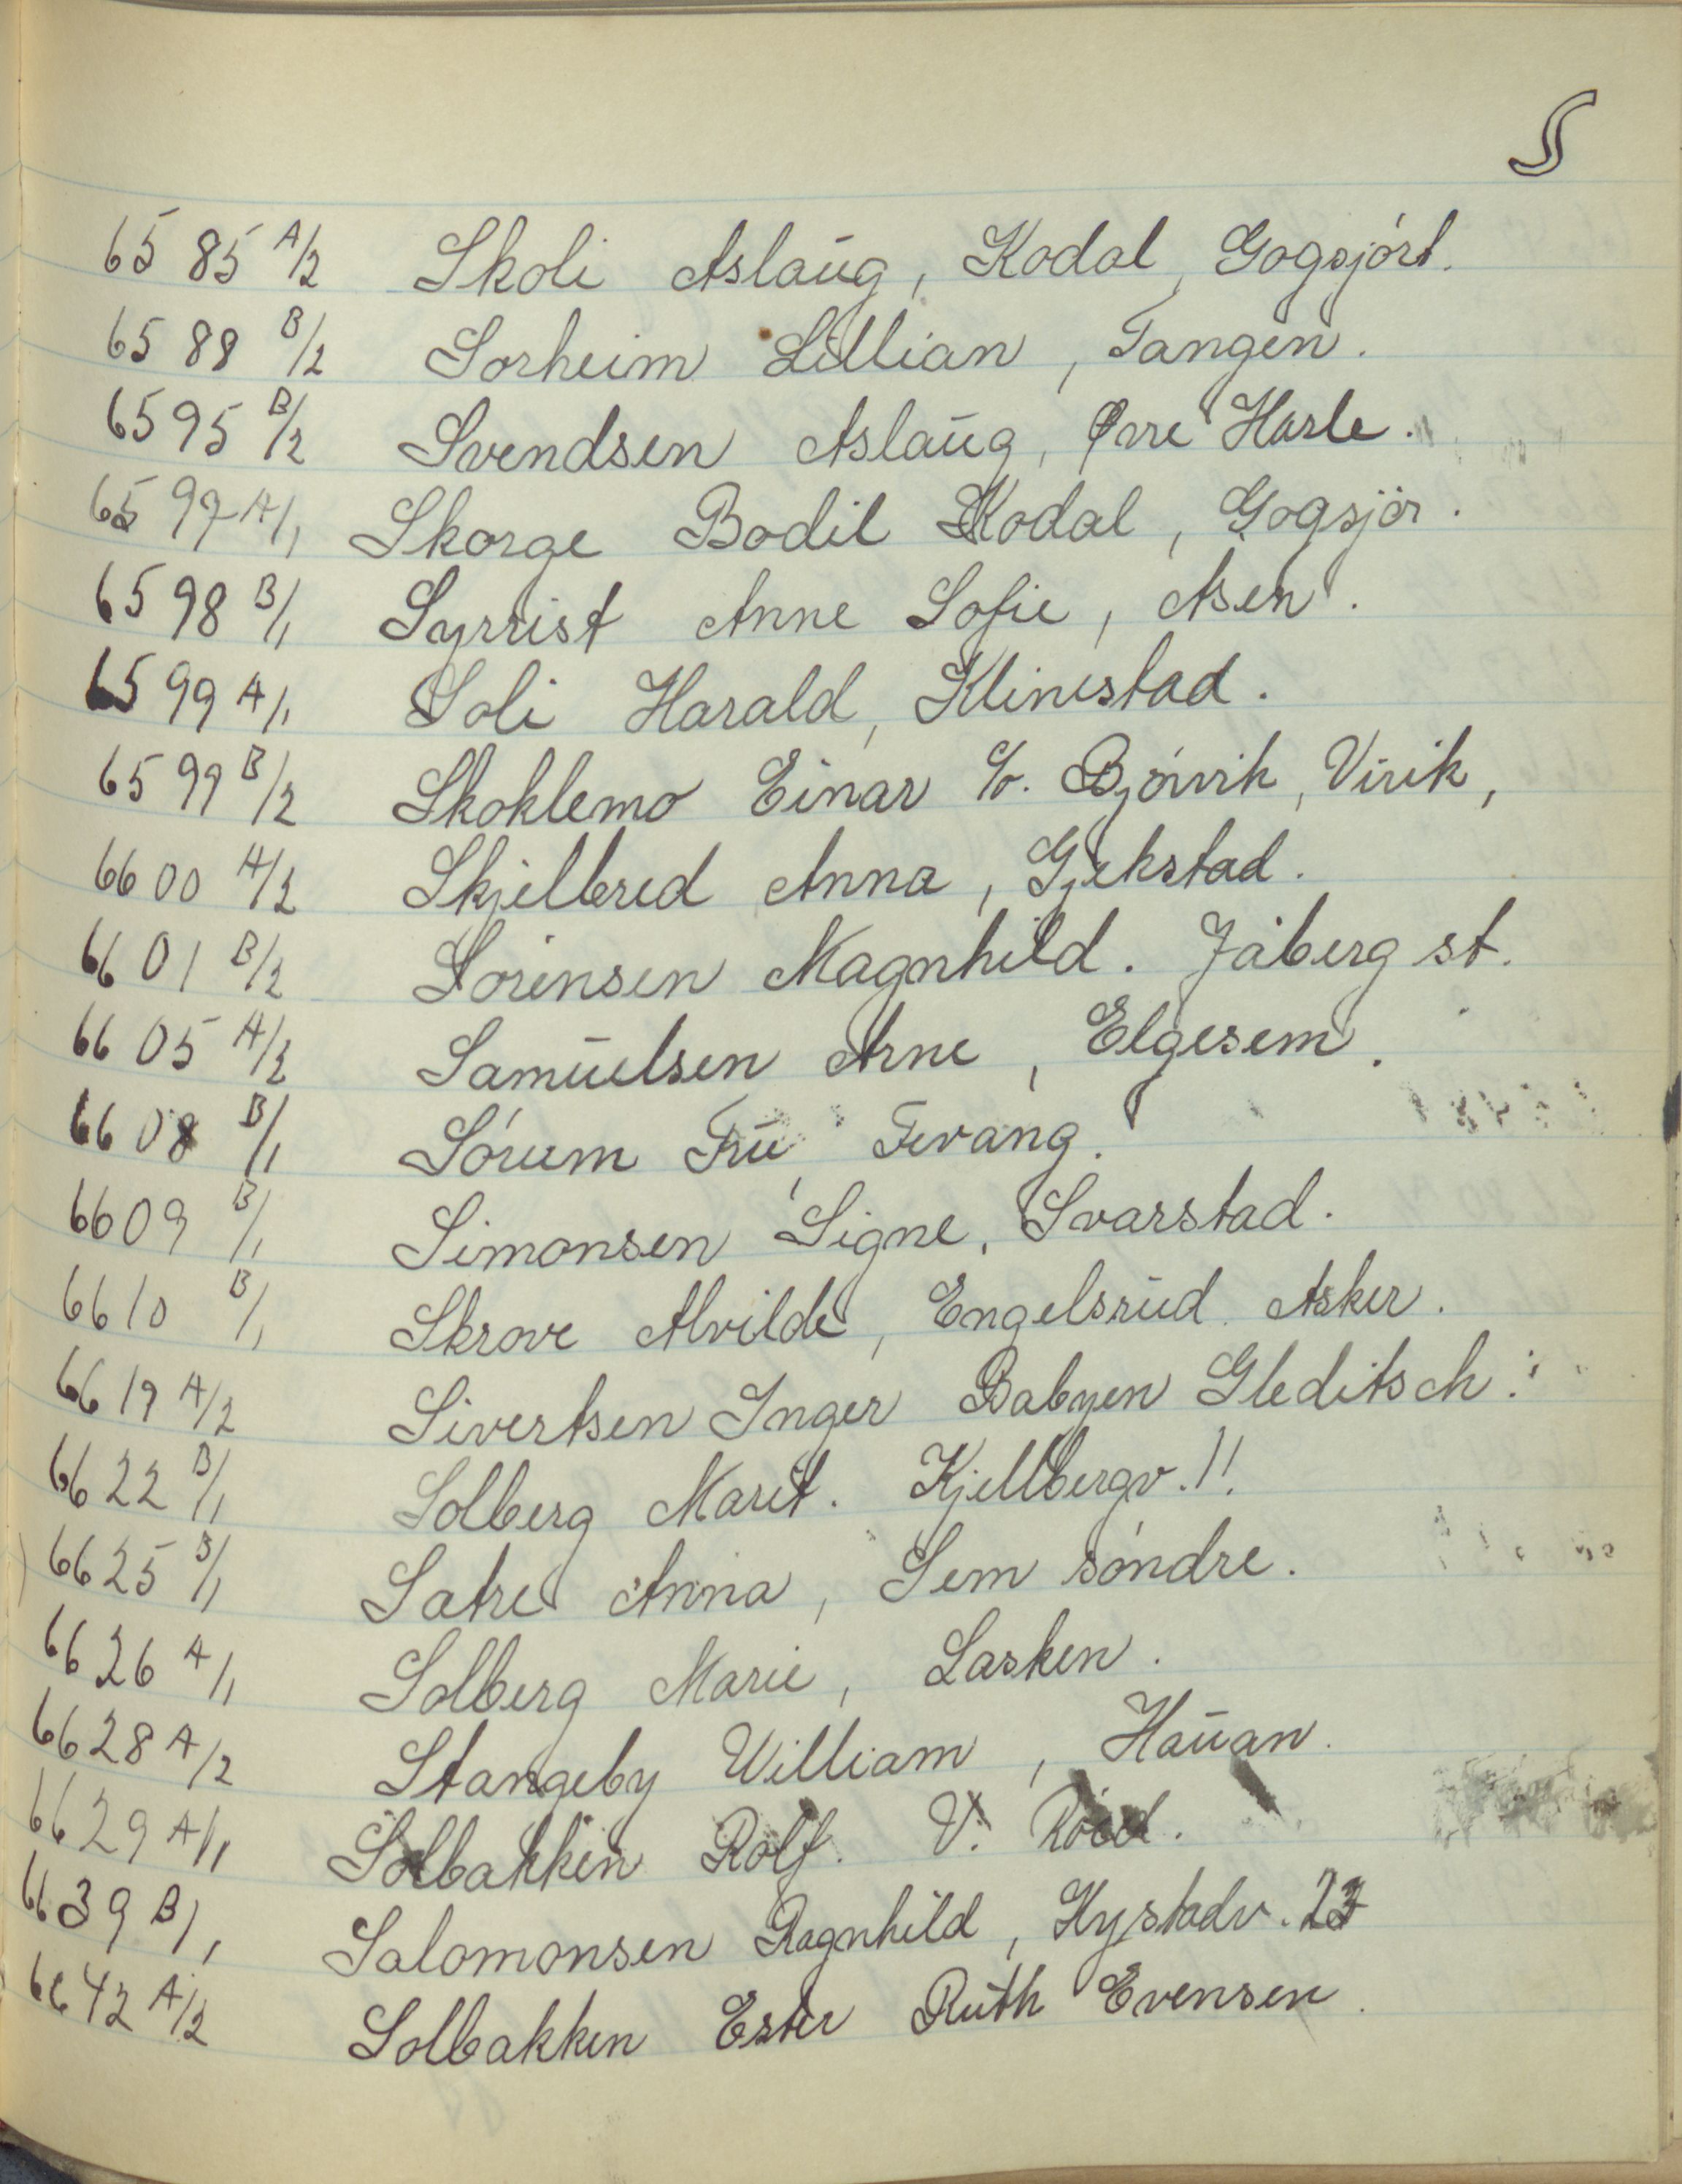 S
6585 A/2 Skoli Aslaug, Kodal, Gogsjört.
6588 B/2 Sorheim Lillian, Tangen.
6595 B/2 Svendsen Aslaug, Øvre Hasle.
6597 A/1 Skorge Bodil Kodal, Gogsjör.
6598 B/1 Syrrist Anne Sofie, Åsen.
6599 A/1 Soli Harald, Klinestad.
6599 B/2 Skoklemo Einar c/o. Bjørvik, Virik,
6600 A/2 Skjelbred Anna, Gjekstad.
6601 B/2 Sörensen Magnhild. Jåberg st.
6605 A/2 Samuelsen Arne, Elgesem.
6608 B/1 Sórum Fru, Fevang.
6609 B/1 Simonsen Signe, Svarstad.
6610 B/1 Skrove Alvilde, Engelsrud. Asker.
6619 A/2 Sivertsen Inger Babyen Gleditsch.
6622 B/1 Solberg Marit. Kjellbergv. 11.
6625 B/1 Satre Anna, Sem söndre.
6626 A/1 Solberg Marie, Lasken.
6628 A/2 Stangeby William, Hauan.
6629 A/1 Solbakken Rolf. V. Röed.
6639 B/1 Salomonsen Ragnhild, Hystadv. 23
6642 A/2 Solbakken Ester Ruth Evensen.